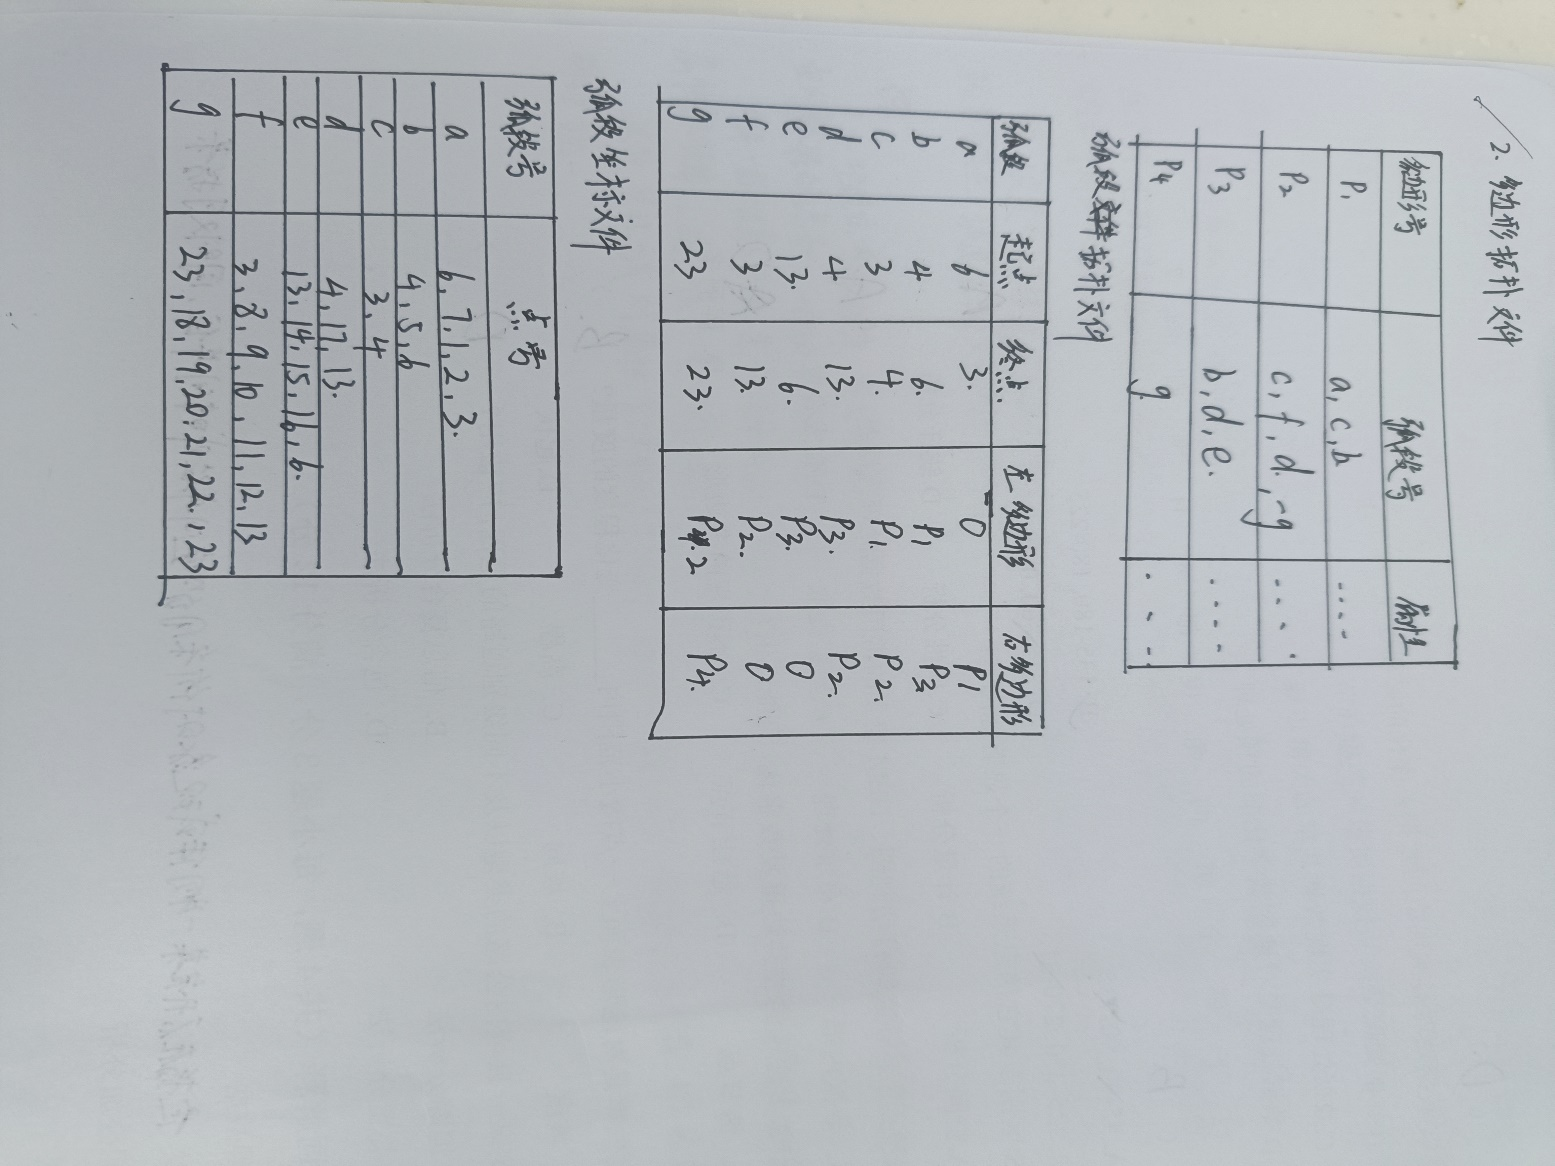 2. 多边形拓扑文件
多边形号 弧段号 属性
P1 a, c, b ....
P2 c, f, d, -g ....
P3 b, d, e. ....
P4 g. ...
弧段拓扑文件
弧段 起点 终点 左多边形 右多边形
a 6 3. 0 P1
b 4 6. P1 P3
c 3 4. P1. P2.
d 4 13. P3. P2.
e 13. 6. P3. 0
f 3 13. P2. 0
g 23 23. P2 P4.
弧段坐标文件
弧段号 点号
a 6, 7, 1, 2, 3.
b 4, 5, 6
c 3, 4
d 4, 17, 13.
e 13, 14, 15, 16, 6.
f 3, 8, 9, 10, 11, 12, 13
g 23, 18, 19, 20, 21, 22, 23